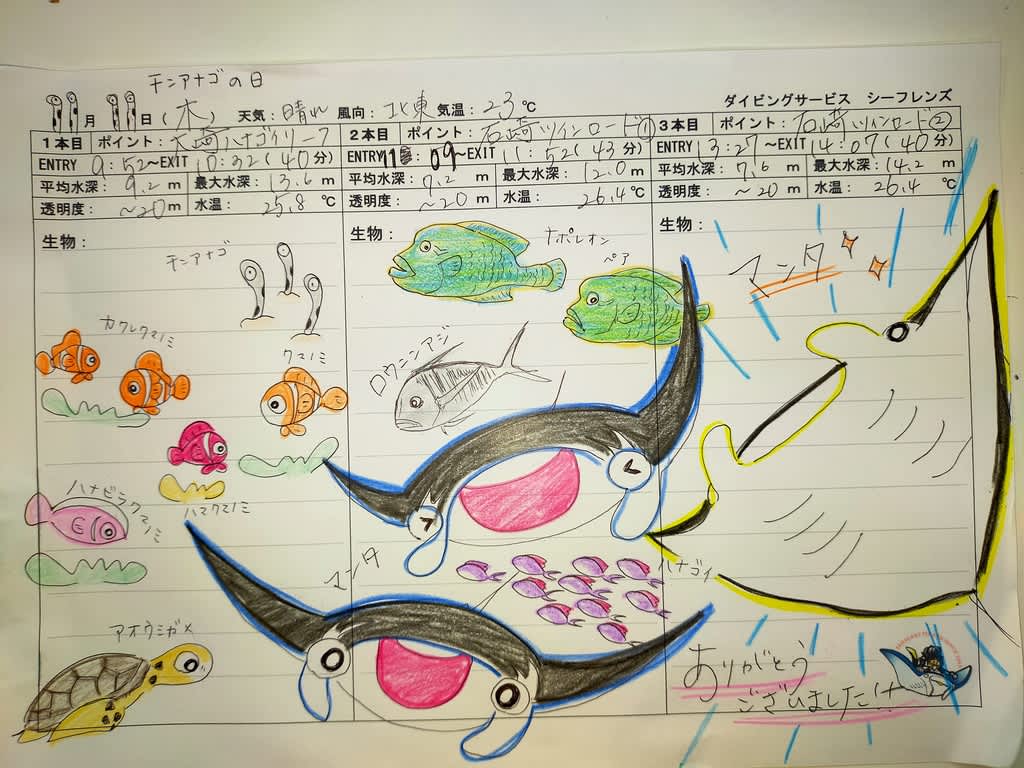 チンアナゴの日
月 日(木) 天気:晴れ 風向:北東 気温:23℃
ダイビングサービス シーフレンズ
1本目 ポイント:大崎ハナゴイリーフ
ENTRY 9:52~EXIT 10:32(40分)
平均水深:9.2m 最大水深:13.6m
透明度:~20m 水温:25.8℃
生物:
チンアナゴ
カクレクマノミ
クマノミ
ハマクマノミ
ハナビラクマノミ
アオウミガメ
2本目 ポイント:石崎ツインロード①
ENTRY 11:09~EXIT 11:52(43分)
平均水深:7.2m 最大水深:12.0m
透明度:~20m 水温:26.4℃
生物:
ナポレオン
ペア
ロウニンアジ
マンタ
ハナゴイ
3本目 ポイント:石崎ツインロード②
ENTRY 13:27~EXIT 14:07(40分)
平均水深:7.6m 最大水深:14.2m
透明度:~20m 水温:26.4℃
生物:
マンタ
ありがとう
ございました!!